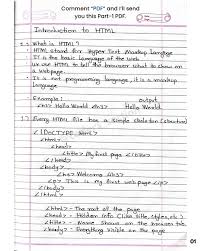 Comment "PDF" and I'll send
you this Part-1 PDF.
Introduction to HTML
What is HTML?
HTML stand for Hyper Text Markup Language
It is the basic language of the web.
We use HTML to tell the browser what to show on
a webpage.
It is not programming language, it is a markup
language.
Example: output
<h1> Hello World </h1> Hello World
Every HTML file has a simple skeleton (structure)
<!DOCTYPE html>
<html>
<head>
<title> My first page </title>
</head>
<body>
<h1> Welcome </h1>
<p> This is my first web page </p>
</body>
</html>
<html> - The root of the page
<head> - Hidden info (like title, styles, etc.)
<title> - Name shown on the browser
<body> - Everything visible on the page
01